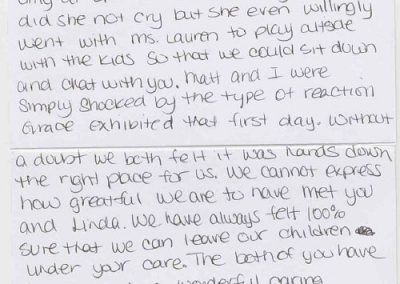 did she not cry but she even willingly
went with ms. Lauren to play outside
with the kids so that we could sit down
and chat with you. Matt and I were
simply shocked by the type of reaction
Grace exhibited that first day. Without
a doubt we both felt it was hands down
the right place for us. We cannot express
how greatful we are to have met you
and Linda. We have always felt 100%
sure that we can leave our children
under your care. The both of you have
wonderful caring